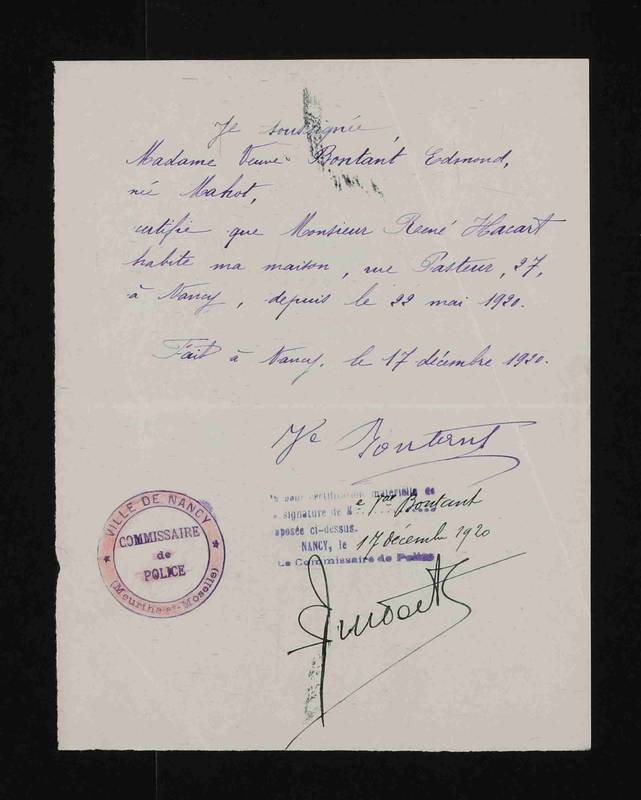 Je soussignée
Madame Veuve Bontant Edmond,
née Mahot,
certifie que Monsieur René Hacart
habite ma maison, rue Pasteur, 27,
à Nancy, depuis le 22 mai 1920.
Fait à Nancy, le 17 décembre 1920.
Ve Bontant
pour certification matérielle de
signature de Me Vve Bontant
aposée ci-dessus.
NANCY, le 17 décembre 1920
Le Commissaire de Police
VILLE DE NANCY
COMMISSAIRE
de
POLICE
(Meurthe-et-Moselle)